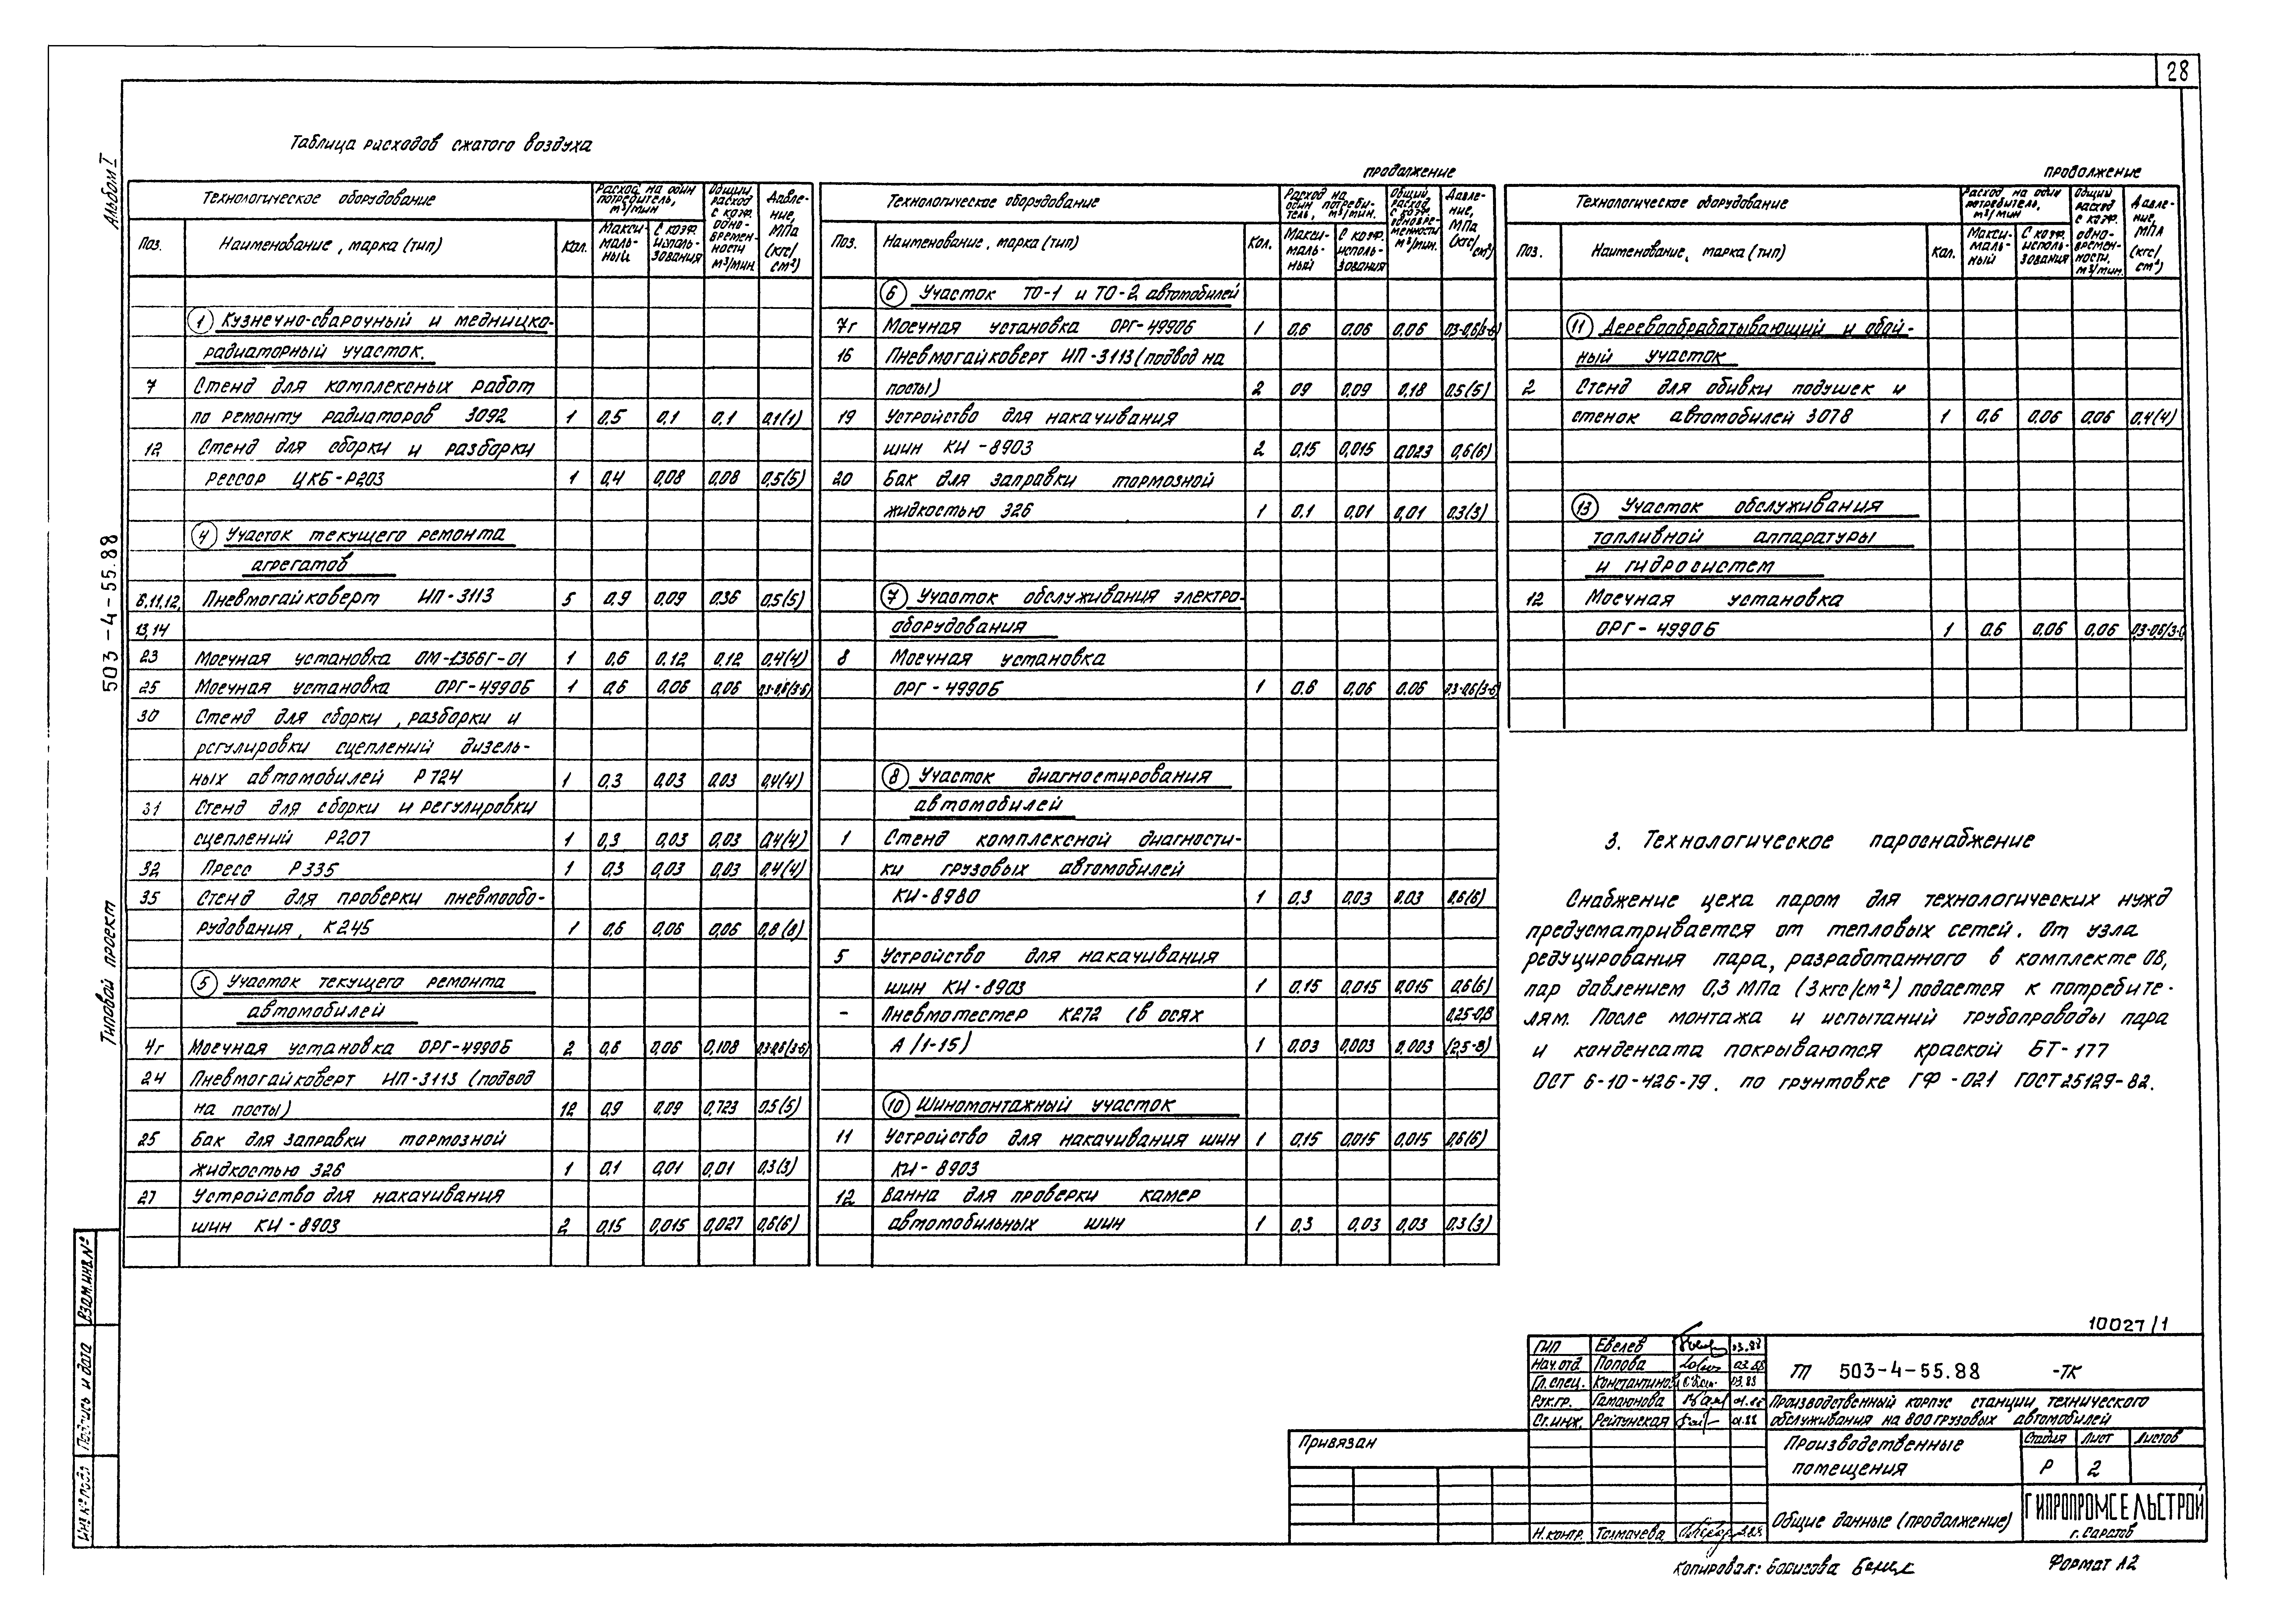 28
Альбом I
Таблица расходов сжатого воздуха
Технологическое оборудование | Расход на один потребитель, м³/мин | Общий расход с коэф. одновременности м³/мин | Давление, МПа (кгс/см²)
Поз. | Наименование, марка (тип) | Кол. | Максимальный | С коэф. использования
1 Кузнечно-сварочный и медницко-
радиаторный участок.
7 Стенд для комплексных работ
по ремонту радиаторов 3092 1 0,5 0,1 0,1 0,1(1)
12 Стенд для сборки и разборки
рессор ЦКБ-Р203 1 0,4 0,08 0,08 0,5(5)
4 Участок текущего ремонта
агрегатов
8,11,12, Пневмогайковерт ИП-3113 5 0,9 0,09 0,36 0,5(5)
13,14
23 Моечная установка ОМ-1366Г-01 1 0,6 0,12 0,12 0,4(4)
25 Моечная установка ОРГ-4990Б 1 0,6 0,06 0,06 0,3-0,6(3-6)
30 Стенд для сборки, разборки и
регулировки сцеплений дизель-
ных автомобилей Р724 1 0,3 0,03 0,03 0,4(4)
31 Стенд для сборки и регулировки
сцеплений Р207 1 0,3 0,03 0,03 0,4(4)
32 Пресс Р335 1 0,3 0,03 0,03 0,4(4)
35 Стенд для проверки пневмообо-
рудования, К245 1 0,6 0,06 0,06 0,8(8)
5 Участок текущего ремонта
автомобилей
4г Моечная установка ОРГ-4990Б 2 0,6 0,06 0,108 0,3-0,6(3-6)
24 Пневмогайковерт ИП-3113 (подвод
на посты) 12 0,9 0,09 0,723 0,5(5)
25 Бак для заправки тормозной
жидкостью 326 1 0,1 0,01 0,01 0,3(3)
27 Устройство для накачивания
шин КИ-8903 2 0,15 0,015 0,027 0,6(6)
продолжение
Технологическое оборудование | Расход на один потребитель, м³/мин. | Общий расход с коэф. одновременности м³/мин. | Давление, МПа (кгс/см²)
Поз. | Наименование, марка (тип) | Кол. | Максимальный | С коэф. использования
6 Участок ТО-1 и ТО-2 автомобилей
7г Моечная установка ОРГ-4990Б 1 0,6 0,06 0,06 0,3-0,6(3-6)
16 Пневмогайковерт ИП-3113 (подвод на
посты) 2 0,9 0,09 0,18 0,5(5)
19 Устройство для накачивания
шин КИ-8903 2 0,15 0,015 0,023 0,6(6)
20 Бак для заправки тормозной
жидкостью 326 1 0,1 0,01 0,01 0,3(3)
7 Участок обслуживания электро-
оборудования
8 Моечная установка
ОРГ-4990Б 1 0,6 0,06 0,06 0,3-0,6(3-6)
8 Участок диагностирования
автомобилей
1 Стенд комплексной диагности-
ки грузовых автомобилей
КИ-8980 1 0,3 0,03 0,03 0,6(6)
5 Устройство для накачивания
шин КИ-8903 1 0,15 0,015 0,015 0,6(6)
- Пневмотестер К272 (в осях 0,25-0,8
А/1-15) 1 0,03 0,003 0,003 (2,5-8)
10 Шиномонтажный участок
11 Устройство для накачивания шин 1 0,15 0,015 0,015 0,6(6)
КИ-8903
12 Ванна для проверки камер
автомобильных шин 1 0,3 0,03 0,03 0,3(3)
продолжение
Технологическое оборудование | Расход на один потребитель, м³/мин | Общий расход с коэф. одновременности, м³/мин. | Давление, МПА (кгс/см²)
Поз. | Наименование, марка (тип) | Кол. | Максимальный | С коэф. использования
11 Деревообрабатывающий и обой-
ный участок
2 Стенд для обивки подушек и
стенок автомобилей 3078 1 0,6 0,06 0,06 0,4(4)
13 Участок обслуживания
топливной аппаратуры
и гидросистем
12 Моечная установка
ОРГ-4990Б 1 0,6 0,06 0,06 0,3-0,6(3-6)
3. Технологическое пароснабжение
Снабжение цеха паром для технологических нужд
предусматривается от тепловых сетей. От узла
редуцирования пара, разработанного в комплекте ОВ,
пар давлением 0,3 МПа (3кгс/см²) подается к потребите-
лям. После монтажа и испытаний трубопроводы пара
и конденсата покрываются краской БТ-177
ОСТ 6-10-426-79. по грунтовке ГФ-021 ГОСТ 25129-82.
Типовой проект 503-4-55.88
Взам.инв.№
Подпись и дата
Инв № подл
10027/1
ГИП Евелев 03.88
Нач.отд. Попова 03.88
Гл.спец. Константинов 03.88
Рук.гр. Гамаюнова 01.88
Ст.инж. Рейтунская 01.88
Н.контр. Толмачева
Привязан
ТП 503-4-55.88 -ТК
Производственный корпус станции технического
обслуживания на 800 грузовых автомобилей
Производственные
помещения
Стадия Лист Листов
Р 2
Общие данные (продолжение)
ГИПРОПРОМСЕЛЬСТРОЙ
г. Саратов
Копировал: Борисова
Формат А2